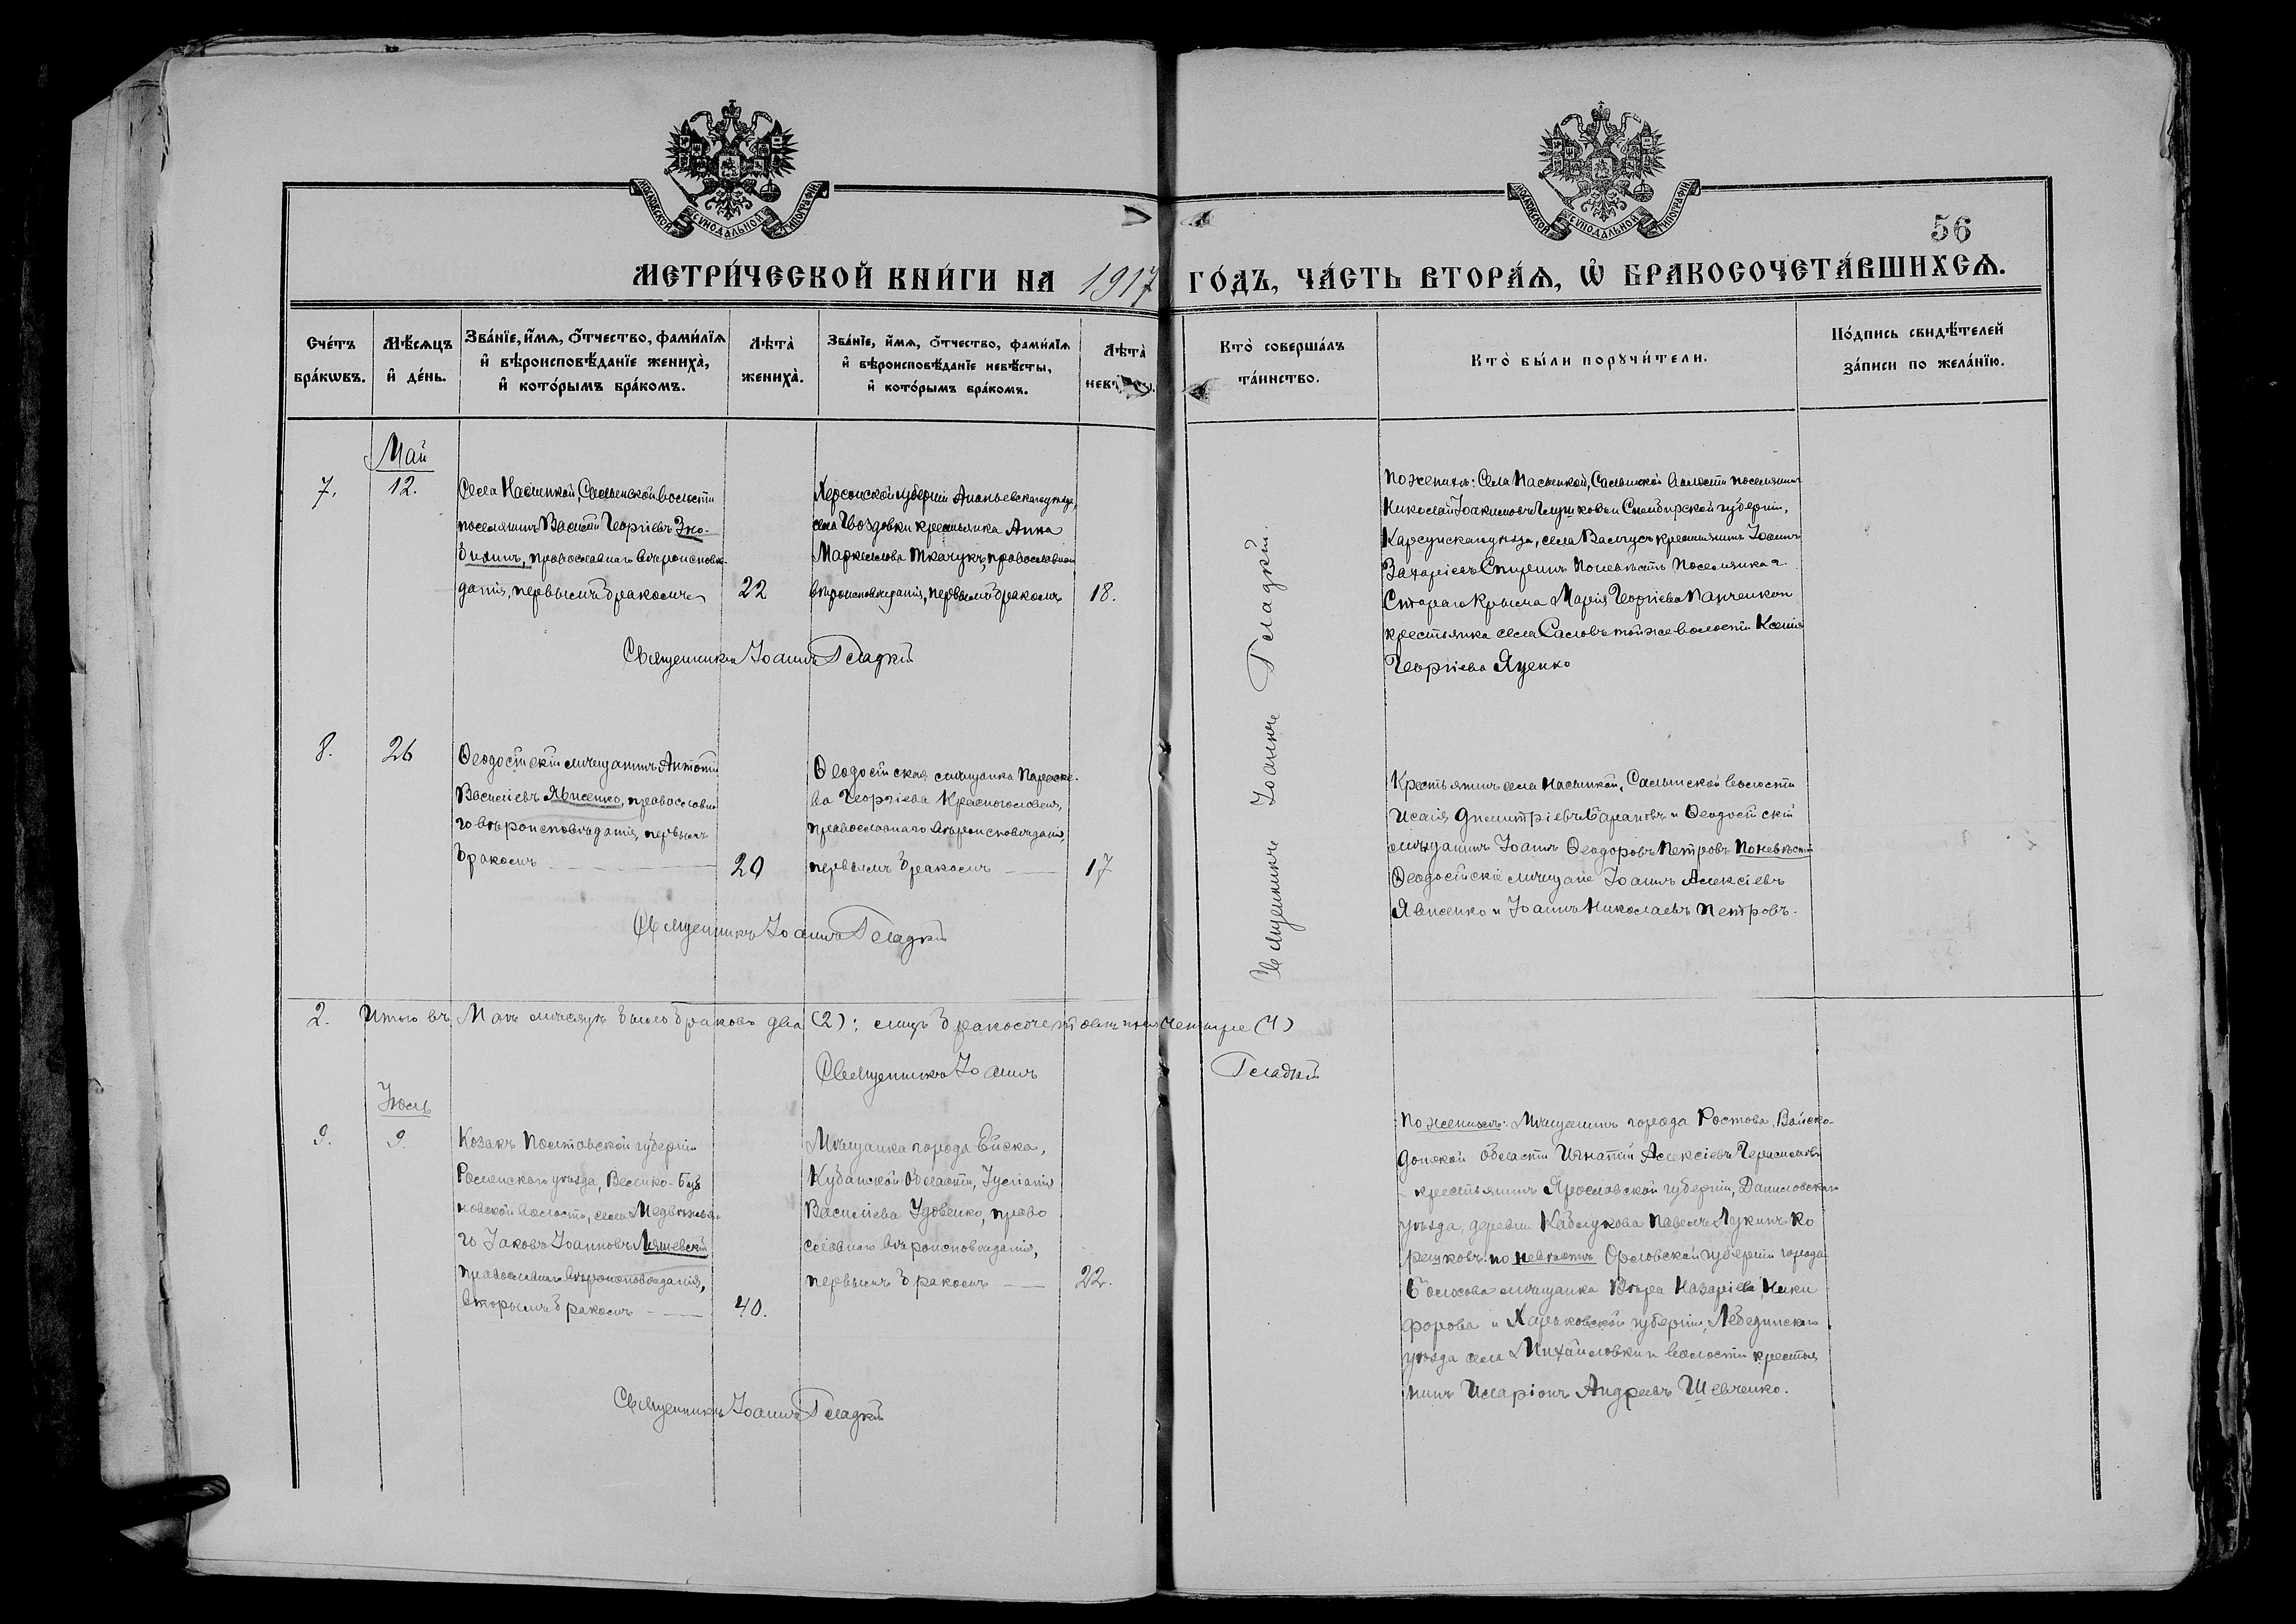 МОСКОВСКОЙ СѴНОДАЛЬНОЙ ТИПОГРАФІИ
МОСКОВСКОЙ СѴНОДАЛЬНОЙ ТИПОГРАФІИ
56
МЕТРИ́ЧЕСКОЙ КНИ́ГИ НА 1917 ГО́ДЪ, ЧА́СТЬ ВТОРА́Ѧ, Ѽ БРАКОСОЧЕТА́ВШИХСѦ.
Сче́тъ бра́кωвъ.
Мѣ́сѧцъ и҆ де́нь.
Зва́нїе, и҆́мѧ, ѻ҆́тчество, фами́лїѧ и҆ вѣроисповѣ́данїе жениха̀, и҆ кото́рымъ бра́комъ.
Лѣ́та̀ жениха̀.
Зва́нїе, и҆́мѧ, ѻ҆́тчество, фами́лїѧ и҆ вѣроисповѣ́данїе невѣ́сты, и҆ кото́рымъ бра́комъ.
Лѣ́та̀
Кто̀ соверша́лъ та́инство.
Кто̀ бы́ли порꙋчи́тели.
По́дпись свидѣ́телей за́писи по жела́нїю.
Май
7.
12.
Села Насыпкой, Салынской волости
поселянинъ Василій Георгіевъ Зно-
бихинъ, православнаго вѣроисповѣ-
данія, первымъ бракомъ
22
Херсонской губерніи Ананьевскаго уѣзда,
села Гвоздовки крестьянка Анна
Маркиалова Ткачукъ, православнаго
вѣроисповѣданія, первымъ бракомъ
18.
Священникъ Іоаннъ Гладкій
По женихѣ: Села Насыпкой, Салынской волости поселянинъ
Николай Іоакимовъ Глушковъ и Симбирской губерніи,
Карсунскаго уѣзда, села Валгусъ крестьянинъ Іоаннъ
Захаріевъ Спиринъ По невѣстѣ Поселянка г.
Стараго Крыма Марія Георгіева Панченко и
крестьянка села Саловъ той же волости Ксенія
Георгіева Яценко
Священникъ Іоаннъ Гладкій.
8.
26
Ѳеодосійскій мѣщанинъ Антоній
Василіевъ Явисенко, православна
го вѣроисповѣданія, первымъ
бракомъ
20
Ѳеодосійская мѣщанка Параске-
ва Георгіева Красноголовая,
православнаго вѣроисповѣданія,
первымъ бракомъ
17
Священникъ Іоаннъ Гладкій
Крестьянинъ села Насыпкой, Салынской волости
Исаія Димитріевъ Барановъ и Ѳеодосійскій
мѣщанинъ Іоаннъ Ѳеодоровъ Петровъ По невѣстѣ
Ѳеодосійскіе мѣщане Іоаннъ Алексіевъ
Явисенко и Іоаннъ Николаевъ Петровъ.
2. Итого въ Маѣ мѣсяцѣ было браковъ два (2); лицъ бракосочетавшихся четыре (4)
Священникъ Іоаннъ Гладкій
Іюль
9.
9.
Козакъ Полтавской губерніи
Роменскаго уѣзда, Велико-Буб
новской волости, села Медвѣжья-
го Іаковъ Іоанновъ Ляшевскій
православнаго вѣроисповѣданія,
вторымъ бракомъ
40.
Мѣщанка города Ейска,
Кубанской области, Іуліанія
Василіева Удовенко, право
славнаго вѣроисповѣданія,
первымъ бракомъ
22.
Священникъ Іоаннъ Гладкій
По женихѣ: Мѣщанинъ города Ростова, Войска-
Донской области Игнатій Алексіевъ
крестьянинъ Ярославской губерніи, Даниловскаго
уѣзда, деревни Каблукова Павелъ Лукинъ Ко
решковъ по невѣстѣ Орловской губерніи города
Болхова мѣщанка Вѣра Назаріева Ники
форова и Харьковской губерніи, Лебединскаго
уѣзда села Михайловки и волости крестья
нинъ Иларіонъ Андреевъ Шевченко.